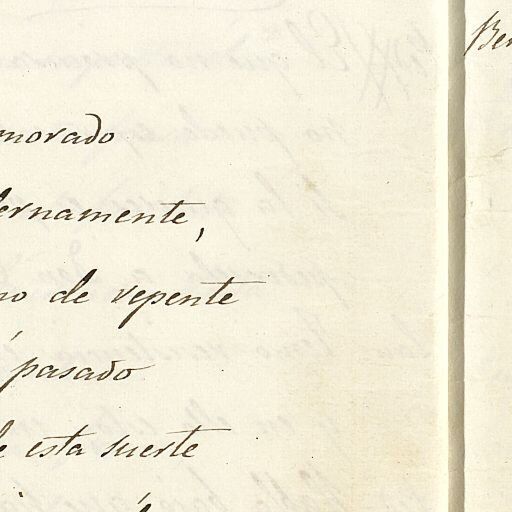 morado
ernamente,
no de repente
pasado
e esta suerte
Ber